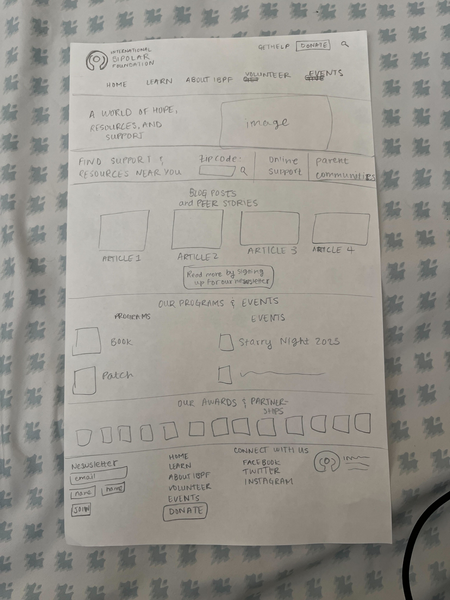 INTERNATIONAL
BIPOLAR
FOUNDATION
GET HELP DONATE
HOME LEARN ABOUT IBPF VOLUNTEER EVENTS
A WORLD OF HOPE,
RESOURCES, AND
SUPPORT
image
FIND SUPPORT &
RESOURCES NEAR YOU
Zip code:
Online
support
parent
communities
BLOG POSTS
and PEER STORIES
ARTICLE 1 ARTICLE 2 ARTICLE 3 ARTICLE 4
Read more by signing
up for our newsletter
OUR PROGRAMS & EVENTS
PROGRAMS EVENTS
Book Starry Night 2025
Patch
OUR AWARDS & PARTNER-
SHIPS
Newsletter
email
name name
JOIN
HOME
LEARN
ABOUT IBPF
VOLUNTEER
EVENTS
DONATE
CONNECT WITH US
FACEBOOK
TWITTER
INSTAGRAM